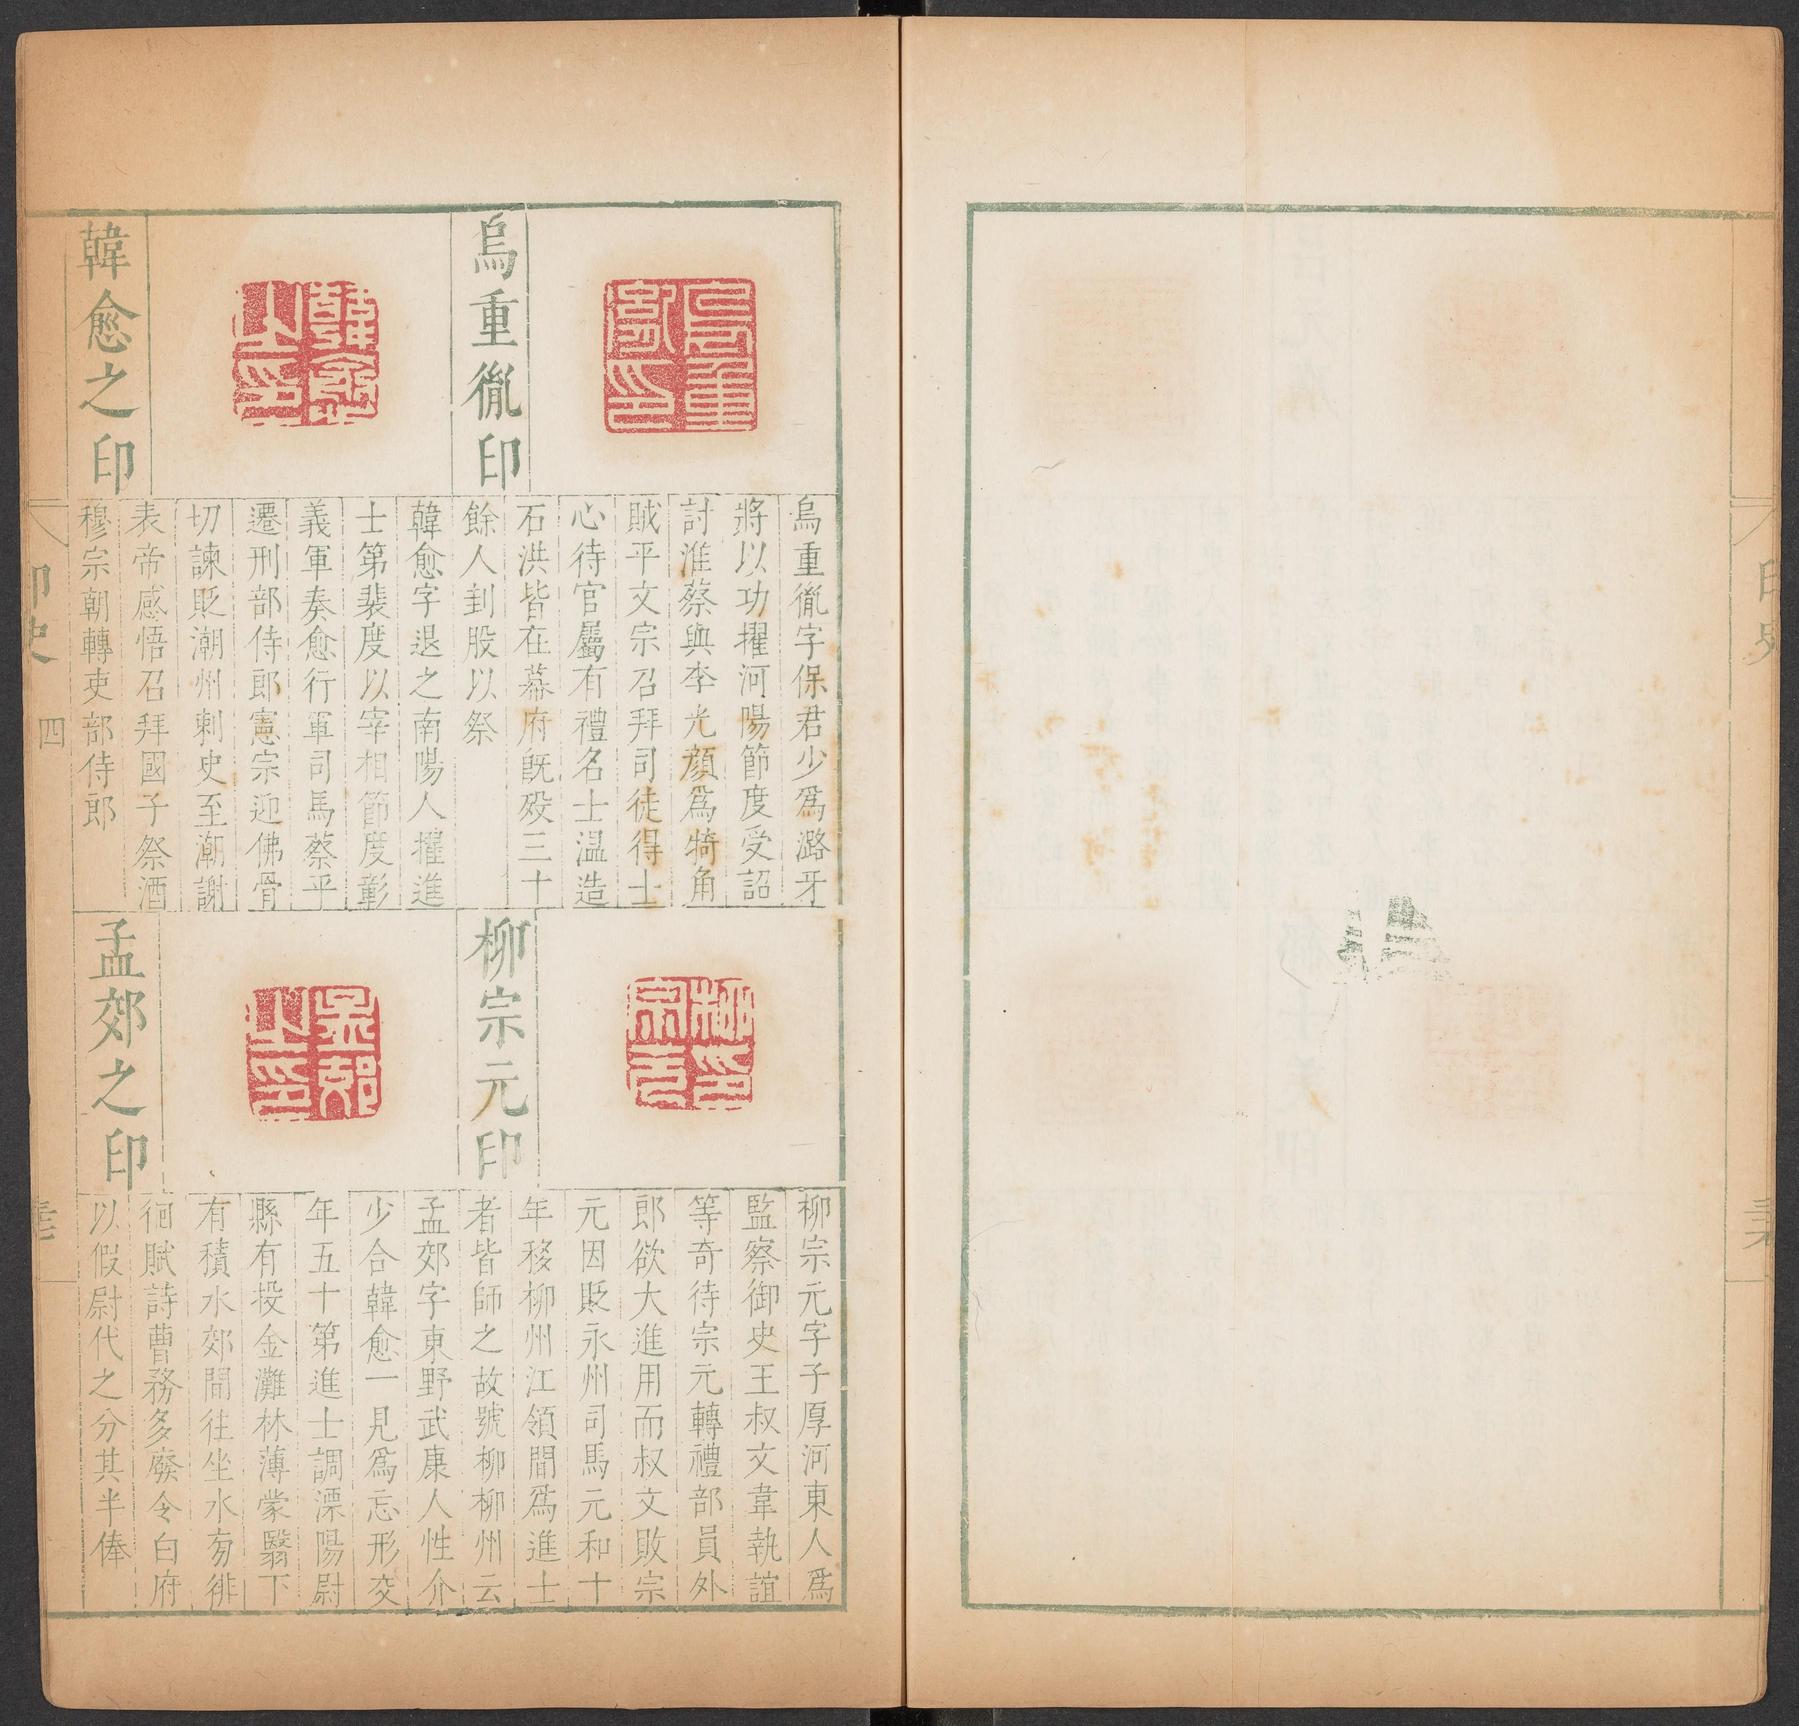 烏重㣧印
烏重㣧字保君少爲潞牙
將以功擢河陽節度受詔
討淮蔡與李光顔爲犄角
賊平文宗召拜司徒得士
心待官屬有禮名士温造
石洪皆在幕府旣殁三十
餘人刲股以祭
韓愈之印
韓愈字退之南陽人擢進
士第裴度以宰相節度彰
義軍奏愈行軍司馬蔡平
遷刑部侍郎憲宗迎佛骨
切諫貶潮州刺史至潮謝
表帝感悟召拜國子祭酒
穆宗朝轉吏部侍郎
柳宗元印
柳宗元字子厚河東人爲
監察御史王叔文韋執誼
等奇待宗元轉禮部員外
郎欲大進用而叔文敗宗
元因貶永州司馬元和十
年移柳州江領間爲進士
者皆師之故號柳柳州云
孟郊之印
孟郊字東野武康人性介
少合韓愈一見爲忘形交
年五十第進士調溧陽尉
縣有投金灘林薄蒙翳下
有積水郊間往坐水旁徘
徊賦詩曹務多廢令白府
以假尉代之分其半俸
印史
四
印史